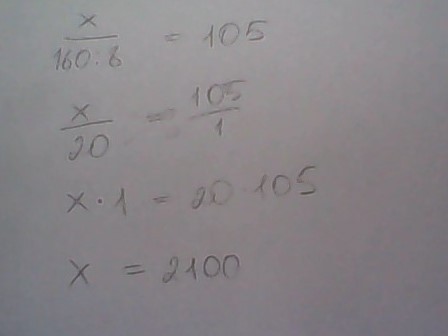 x/160:8 = 105
x/20 = 105/1
x · 1 = 20 105
x = 2100